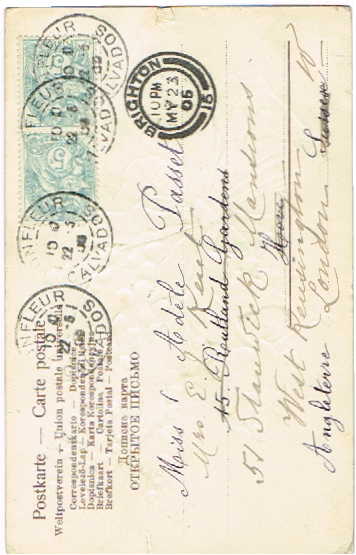 Postkarte — Carte postale
Weltpostverein - Union postale universelle
Correspondenzkarte - Dopisnice
Levelezö-Lap - Korespondenční
Dopisnica - Karta Korespondencyjna
Briefkaart - Cartolina Postale
Brefkort - Tarjeta Postal - Postcard
Дописна карта
ОТКРЫТОЕ ПИСЬМО
HONFLEUR
CALVADOS
22 -5
HONFLEUR
CALVADOS
22 -5
HONFLEUR
CALVADOS
22 -5
HONFLEUR
CALVADOS
22 -5
BRIGHTON
10 PM
MY 23
05
15
Miss Adèle Passet
Mrs E. G. Kent
45 Rutland Gardens
51 Mansions
Hove
West Kensington W
London Sussex
Angleterre